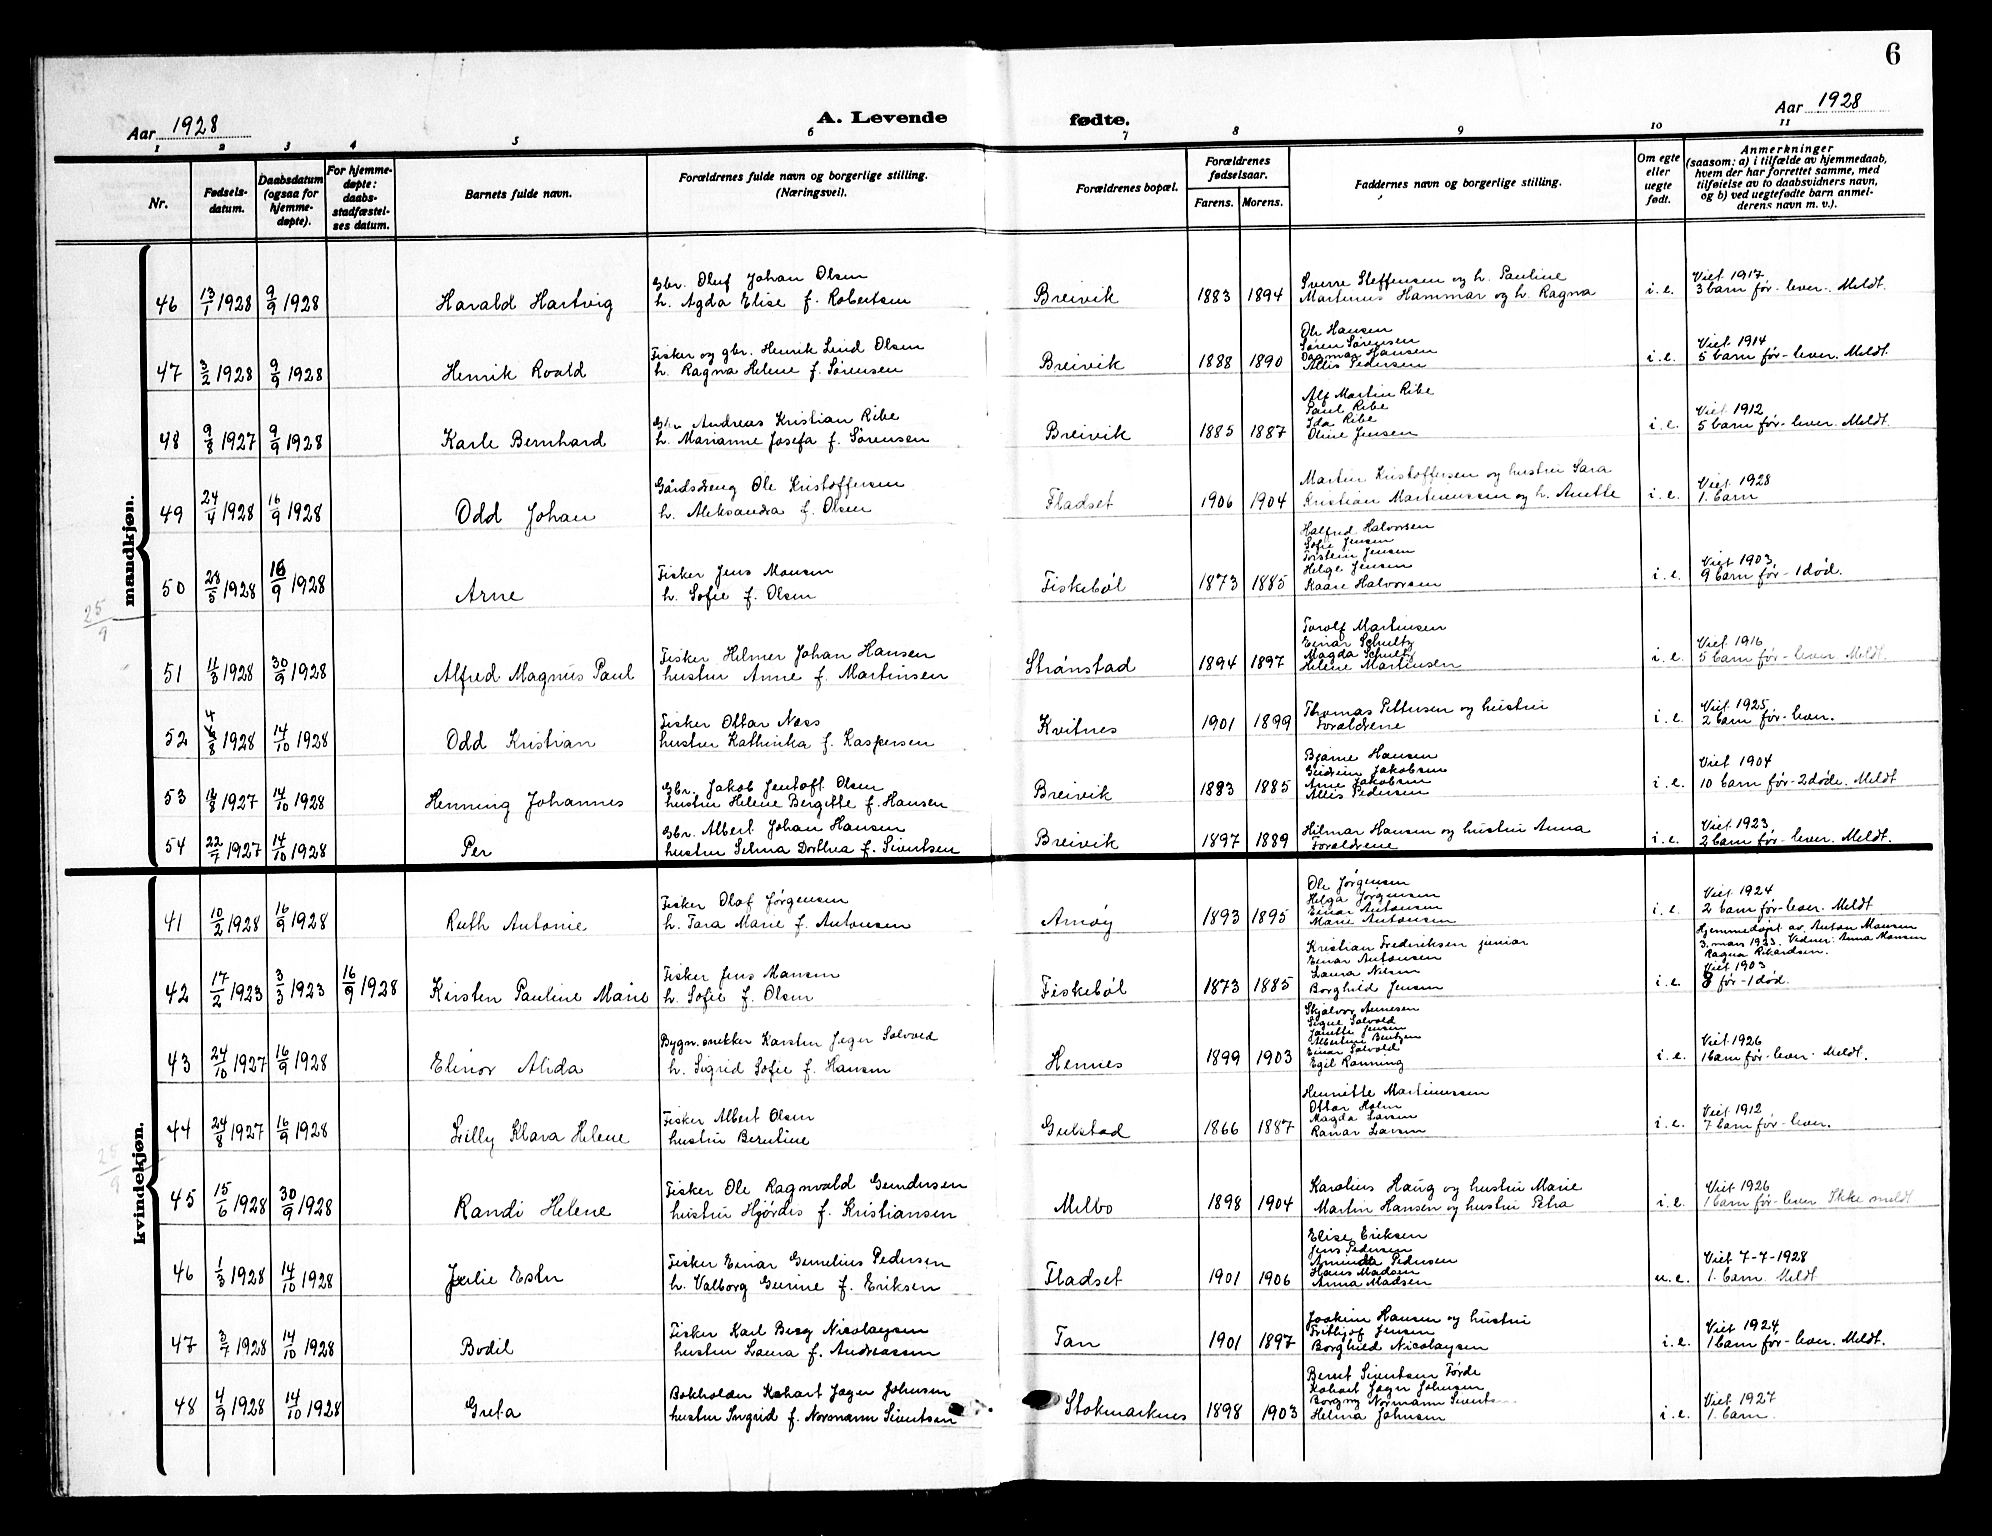 6
Aar 1928
A. Levende
fødte.
Aar 1928
1 2 3 4 5 6 7 8 9 10 11
Nr.
Fødsels-
datum.
Daabsdatum
(ogsaa for
hjemme-
døpte).
For hjemme-
døpte:
daabs-
stadfæstel-
ses datum.
Barnets fulde navn.
Forældrenes fulde navn og borgerlige stilling.
(Næringsvei).
Forældrenes bopæl.
Forældrenes
fødselsaar.
Farens. Morens.
Faddernes navn og borgerlige stilling.
Om egte
eller
uegte
født.
Anmerkninger
(saasom: a) i tilfælde av hjemmedaab,
hvem der har forrettet samme, med
tilføielse av to daabsvidners navn,
og b) ved uegtefødte barn anmel-
derens navn m. v.).
mandkjøn.
25/9
46 13/1 1928 9/9 1928 Harald Hartvig
Gbr. Oluf Johan Olsen
h. Agda Elise f. Robertsen
Breivik 1883 1894
Sverre Steffensen og h. Pauline
Martinus Hammar og h. Ragna
i.e.
Viet 1917
3 barn før - lever. Meldt.
47 3/2 1928 9/9 1928 Henrik Roald
Fisker og gbr. Henrik Lind Olsen
h. Ragna Helene f. Sørensen
Breivik 1888 1890
Ole Hansen
Søren Sørensen
Dagmar Hansen
Allis Pedersen
i.e.
Viet 1914
5 barn før - lever. Meldt.
48 9/8 1927 9/9 1928 Karle Bernhard
Gbr Andreas Kristian Ribe
h. Marianne Josefa f. Sørensen
Breivik 1885 1887
Alf Martin Ribe
Paul Ribe
Ida Ribe
Oline Jensen
i.e.
Viet 1912
5 barn før - lever. Meldt.
49 24/4 1928 16/9 1928 Odd Johan
Gårdsdreng Ole Kristoffersen
h. Aleksandra f. Olsen
Fladset 1906 1904
Martin Kristoffersen og hustru Sara
Kristian Martinussen og h. Anette
i.e.
Viet 1928
1. barn
50 28/5 1928 16/9 1928 Arne
Fisker Jens Monsen
h. Sofie f. Olsen
Fiskebøl 1873 1885
Halfred Halvorsen
Sofie Jensen
Torstein Jensen
Helge Jensen
Kaare Halvorsen
i.e.
Viet 1903
9 barn før - 1 død.
51 11/3 1928 30/9 1928 Alfred Magnus Paul
Fisker Hilmer Johan Hansen
hustru Anne f. Martinsen
Strønstad 1894 1897
Torolf Martinsen
Einar Schultz
Magda Schultz
Helene Martinsen
i.e.
Viet 1916
5 barn før - lever Meldt.
52 4/8 1928 14/10 1928 Odd Kristian
Fisker Ottar Næss
hustru Kathinka f. Kaspersen
Kvitnes 1901 1899
Thomas Pettersen og hustru
Forældrene
i.e.
Viet 1925
2 barn før - lever.
53 /8 1927 14/10 1928 Henning Johannes
Gbr. Jakob Jentoft Olsen
hustru Helene Bergitte f. Hansen
Breivik 1883 1885
Bjarne Hansen
Gudrun Jakobsen
Arne Jakobsen
Allis Pedersen
i.e.
Viet 1904
10 barn før - 2 døde. Meldt
54 22/7 1927 14/10 1928 Per
Gbr. Albert Johan Hansen
hustru Selma Dorthea f. Sivertsen
Breivik 1897 1889
Hilmar Hansen og hustru Anna
Forældrene
i.e.
Viet 1923
2 barn før - lever. Meldt.
kvindekjøn.
25/9
41 10/2 1928 16/9 1928 Ruth Antonie
Fisker Olaf Jørgensen
h. Tara Marie f. Antonsen
Arnøy 1893 1895
Ole Jørgensen
Helga Jørgensen
Einar Antonsen
Marie Antonsen
i.e.
Viet 1924
2 barn før - lever. Meldt
42 17/2 1923 3/3 1923 16/9 1928 Kirsten Pauline Marie
Fisker Jens Monsen
h. Sofie f. Olsen
Fiskebøl 1873 1885
Kristian Frederiksen junior
Einar Antonsen
Laura Nilsen
Borghild Jensen
i.e.
Hjemmedøpt av Anton Monsen
3. mars 1923. Vidner: Anna Monsen
Ragna Rikardsen.
Viet 1903
8 før - 1 død.
43 24/10 1927 16/9 1928 Elinor Alida
Bygn. snekker Karsten Jæger Solvold
h. Sigrid Sofie f. Hansen
Hennes 1899 1903
Skjalvor Arnesen
Signe Solvold
Janette Jensen
Albertine Bentzen
Einar Solvold
Egil Rønning
i.e.
Viet 1926
1 barn før - lever. Meldt.
44 24/8 1927 16/9 1928 Lilly Klara Helene
Fisker Albert Olsen
hustru Berntine
Gulstad 1866 1887
Henriette Martinussen
Ottar Holm
Magda Larsen
Ranar Larsen
i.e.
Viet 1912
7 barn før - lever.
45 15/6 1928 30/9 1928 Randi Helene
Fisker Ole Ragnvald Gundersen
hustru Hjørdis f. Kristiansen
Melbo 1898 1904
Karolius Haug og hustru Marie
Martin Hansen og hustru Petra
i.e.
Viet 1926
1 barn før - lever Ikke meldt
46 1/3 1928 14/10 1928 Julie Ester
Fisker Einar Gunelius Pedersen
h. Valborg Gurine f. Eriksen
Fladset 1901 1906
Elise Eriksen
Jens Pedersen
Aminda Pedersen
Hans Madsen
Anna Madsen
u.e.
Viet 7-7-1928
1. barn. Meldt
47 3/7 1928 14/10 1928 Bodil
Fisker Karl Berg Nicolaysen
hustru Laura f. Andreassen
Tan 1901 1897
Joakim Hansen og hustru
Frithjof Jensen
Borghild Nicolaysen
i.e.
Viet 1924
1 barn før - lever. Meldt.
48 4/9 1928 14/10 1928 Greta
Bokholder Kohart Jæger Johnsen
hustru Ingrid f. Normann Sivertsen
Stokmarknes 1898 1903
Bernt Sivertsen Førde
Kohart Jæger Johnsen
Borgny Normann Siverts
Helma Johnsen
i.e.
Viet 1927
1. barn.